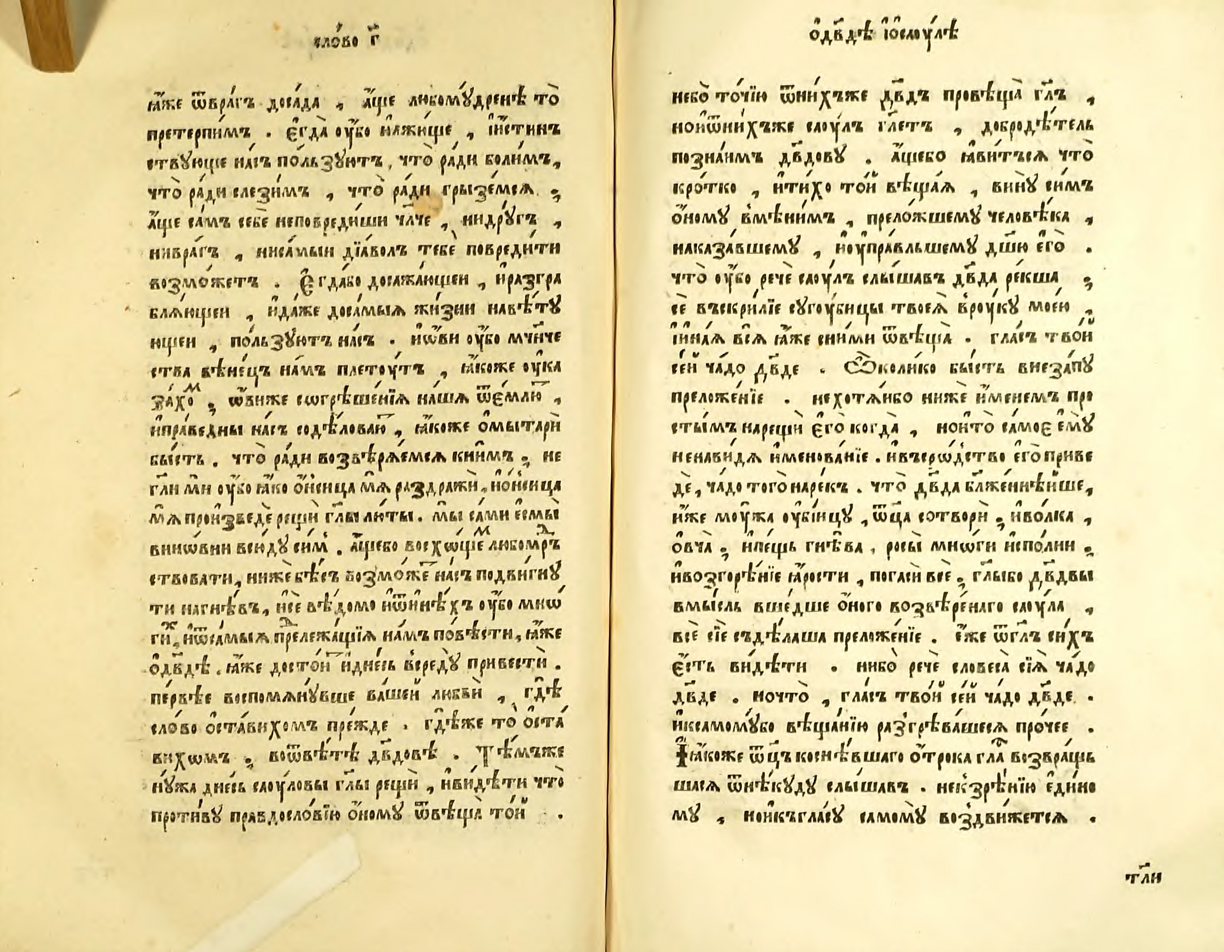 сло́во г҃
ꙗ҆́же ѿвра́гъ доса́да , а҆́ще любомꙋ́дренѣ то̀
претерпи́мъ . є҆гда̀ оу҆́бо и҆ лю́жище , и҆и҆́стин
ствꙋюще на́съ по́льзꙋютъ , что̀ ра́ди боли́мъ ,
что̀ ра́ди слези́мъ , что̀ ра́ди грызе́мсѧ ;
а҆́ще са́мъ себѐ неповреди́ши чл҃че , нидрꙋ́гъ ,
нивра́гъ , ниса́мыи дїа́волъ тебѐ повреди́ти
возмо́жетъ . Є҆гда́бо досажа́ющеи , и҆разгра
блѧ́ющеи , и҆да́же доса́мыѧ жи́зни навѣ́тꙋ
ющеи , по́льзꙋютъ на́съ . и҆ѡ҆́ви оу҆́бо мч҃нче
ства вѣне́цъ на́мъ плето́утъ , ꙗ҆́коже оу҆ка
за́хоⷨ , ѡ҆́виже съгрѣше́нїѧ на́шѧ ѿе́млю ,
и҆пра́ведны на́съ содѣ́ловаю , ꙗ҆́коже ѡ҆мытари
бы́сть . что̀ ра́ди возвѣрѧ́емсѧ кни́мъ ; не
гл҃и мѝ оу҆́бо ꙗ҆́ко о҆́нсица мѧ̀ раздражѝ , и҆о҆́нсица
мѧ̀ произведѐ рещѝ гл҃ы лю́ты . мы̀ са́ми е҆смы̀
вино́вни вси́дꙋ си́мⷨ . а҆́щебо восхо́щеⷨ любомⷣрь
ствовати , ниже бѣ́съ возмо́жеⷮ на́съ подви́гнꙋ
ти нагнѣ́въ , и҆сѐ вѣ́домо и҆ѿи҆нѣ́хъ оу҆́бо мнѡ
гиⷯ , и҆ѿса́мыѧ преⷣлежа́щїѧ на́мъ по́вѣсти , ꙗ҆́же
ѡ҆дв҃дѣ , ꙗ҆́же досто́ит̾ и҆дне́сь вередꙋ̀ привестѝ .
пе́рвѣе воспомѧнꙋ́вше ва́шей любвѝ , гдѣ̀
сло́во ѡ҆ста́вихомъ пре́жде . гдѣ́же то̀ ѡ҆ста́
вихомъ ; воѿвѣ́тѣ дв҃довѣ . Тѣ́мъже
нꙋ́жа дне́сь саоу́ловы гл҃ы рещѝ , и҆ви́дѣти что
проти́вꙋ правдосло́вїю о҆́номꙋ ѿвѣща̀ то́й .
ѡ҆дв҃дѣ и҆ѡ҆саоу́лѣ
небо̀ то́чїю ѿни́хъже дв҃дъ провѣща̀ гл҃ъ ,
нои҆ѿни́хъже саоу́лъ гл҃етъ , добродѣ́тель
позна́имъ дв҃довꙋ . а҆́щебо ꙗ҆ви́тъсѧ что
кро́тко , и҆ти́хо то́й вѣща́ѧ , винꙋ̀ си́мъ
о҆́номꙋ вмѣни́мъ , прело́жшемꙋ человѣ́ка ,
наказа́вшемꙋ , и҆оуправльшемꙋ дш҃ю е҆гѡ̀ .
что̀ оу҆́бо речѐ саоу́лъ слы́шавъ дв҃да ре́кша ;
сѐ въскри́лїе сꙋгоу́бицы твоеѧ̀ вроукꙋ̀ моею̀ ,
и҆и҆на́ѧ всѧ̀ ꙗ҆́же сни́ми ѿвѣща̀ . гла́съ тво́й
се́й ча́до дв҃де . Ѽколико бы́сть внеза́пꙋ
преложе́нїе . нехотѧ́ибо ниже и҆́менемъ про
сты́мъ нарещѝ е҆го̀ когда̀ , нои҆то̀ са́мое е҆мꙋ̀
ненави́дѧ и҆менова́нїе . и҆въсро́дство е҆го̀ приве
дѐ , ча́до того̀ наре́къ . что̀ дв҃да бл҃же́ннѣише ,
и҆́же моу́жа оу҆бі́ицꙋ , ѿц҃а сотворѝ ; и҆во́лка ,
о҆вча̀ ; и҆пе́щь гнѣ́ва , росы̀ мно́ги и҆спо́лни ;
и҆возгорѣ́нїе ꙗ҆́рости , погасѝ всѐ ; гл҃ы́бо дв҃двы
вмы́сль вше́дше о҆́ного возвѣре́наго саоу́ла ,
всѐ сїѐ съдѣ́лаша преложе́нїе . є҆́же ѿгл҃ъ си́хъ
є҆́сть ви́дѣти . нибо̀ речѐ словеса̀ сїѧ̀ ча́до
дв҃де . ночто̀ , гла́съ тво́й се́й ча́до дв҃де .
и҆ксамомꙋ́бо вѣща́нїю разгрѣва́шесѧ про́чее .
І҆ꙗ҆́коже ѿц҃ъ коснѣ́вшаго ѻ҆́трока гла́ⷭ возвра́щь
шасѧ ѿнѣ́кꙋдꙋ слы́шавъ . некзрѣ́нїю є҆ди́но
мꙋ , нои҆къгла́сꙋ самомꙋ̀ воздви́жетсѧ .
тли